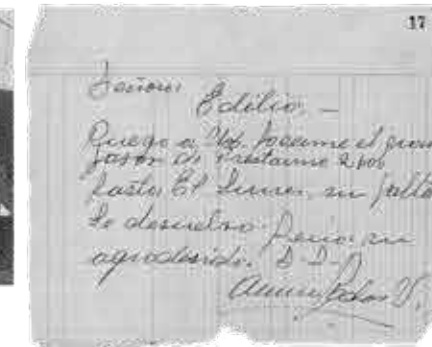 17
Señor
Edilio. —
Ruego a Ud. hacerme el gran
favor de Prestarme 2 pos
hasta El Lunes, sin falta
Le devuelvo
agradecido. D-D-